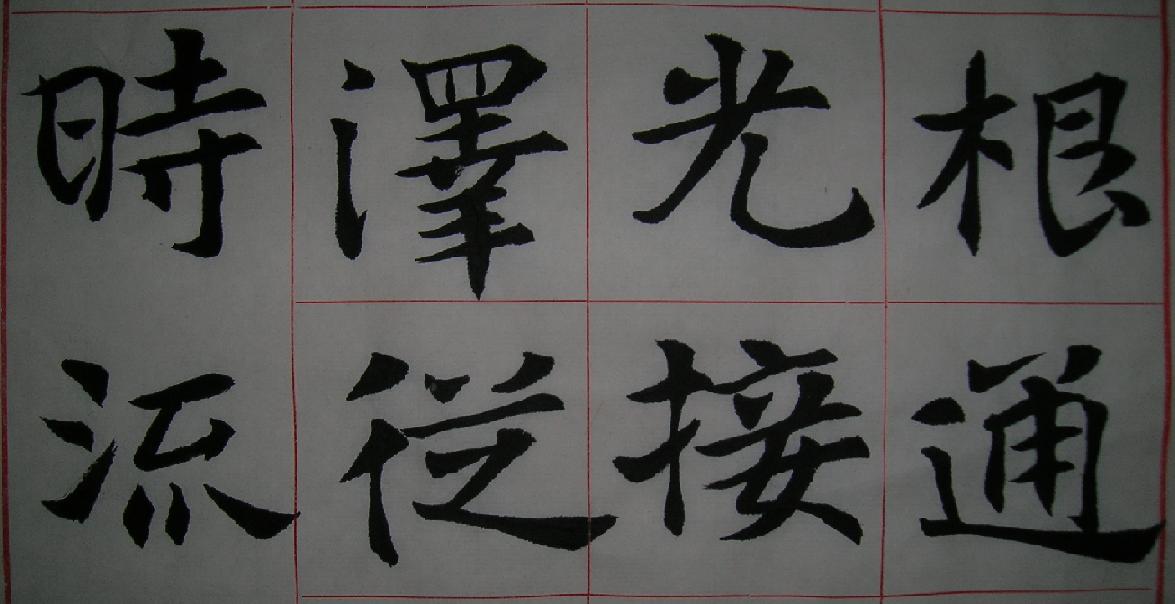 根通
光接
澤從
時流